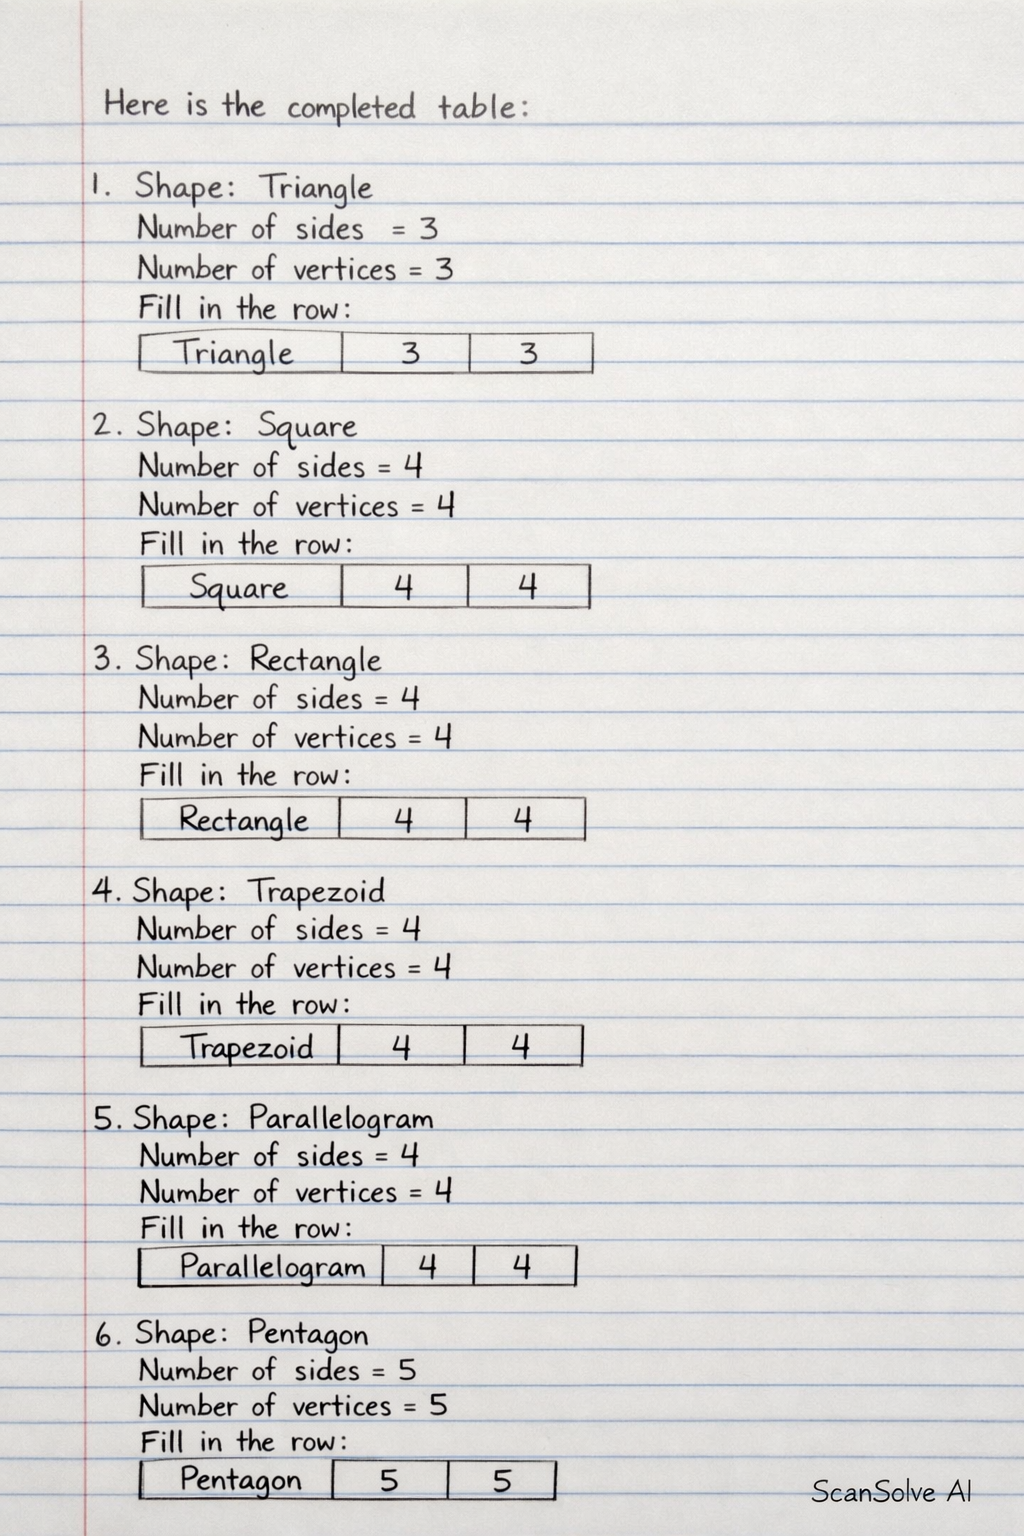 Here is the completed table:
1. Shape: Triangle
Number of sides = 3
Number of vertices = 3
Fill in the row:
Triangle 3 3
2. Shape: Square
Number of sides = 4
Number of vertices = 4
Fill in the row:
Square 4 4
3. Shape: Rectangle
Number of sides = 4
Number of vertices = 4
Fill in the row:
Rectangle 4 4
4. Shape: Trapezoid
Number of sides = 4
Number of vertices = 4
Fill in the row:
Trapezoid 4 4
5. Shape: Parallelogram
Number of sides = 4
Number of vertices = 4
Fill in the row:
Parallelogram 4 4
6. Shape: Pentagon
Number of sides = 5
Number of vertices = 5
Fill in the row:
Pentagon 5 5
ScanSolve AI